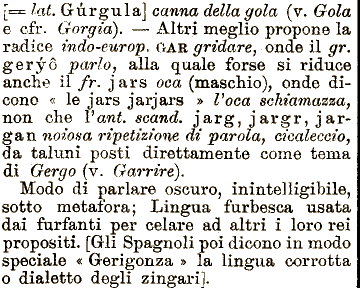 [= lat. Gúrgula] canna della gola (v. Gola
e cfr. Gorgia). — Altri meglio propone la
radice indo-europ. GAR gridare, onde il gr.
gerýô parlo, alla quale forse si riduce
anche il fr. jars oca (maschio), onde di-
cono « le jars jarjars » l'oca schiamazza,
non che l'ant. scand. jarg, jargr, jar-
gan noiosa ripetizione di parola, cicaleccio,
da taluni posti direttamente come tema
di Gergo (v. Garrire).
Modo di parlare oscuro, inintelligibile,
sotto metafora; Lingua furbesca usata
dai furfanti per celare ad altri i loro rei
propositi. [Gli Spagnoli poi dicono in modo
speciale « Gerigonza » la lingua corrotta
o dialetto degli zingari].